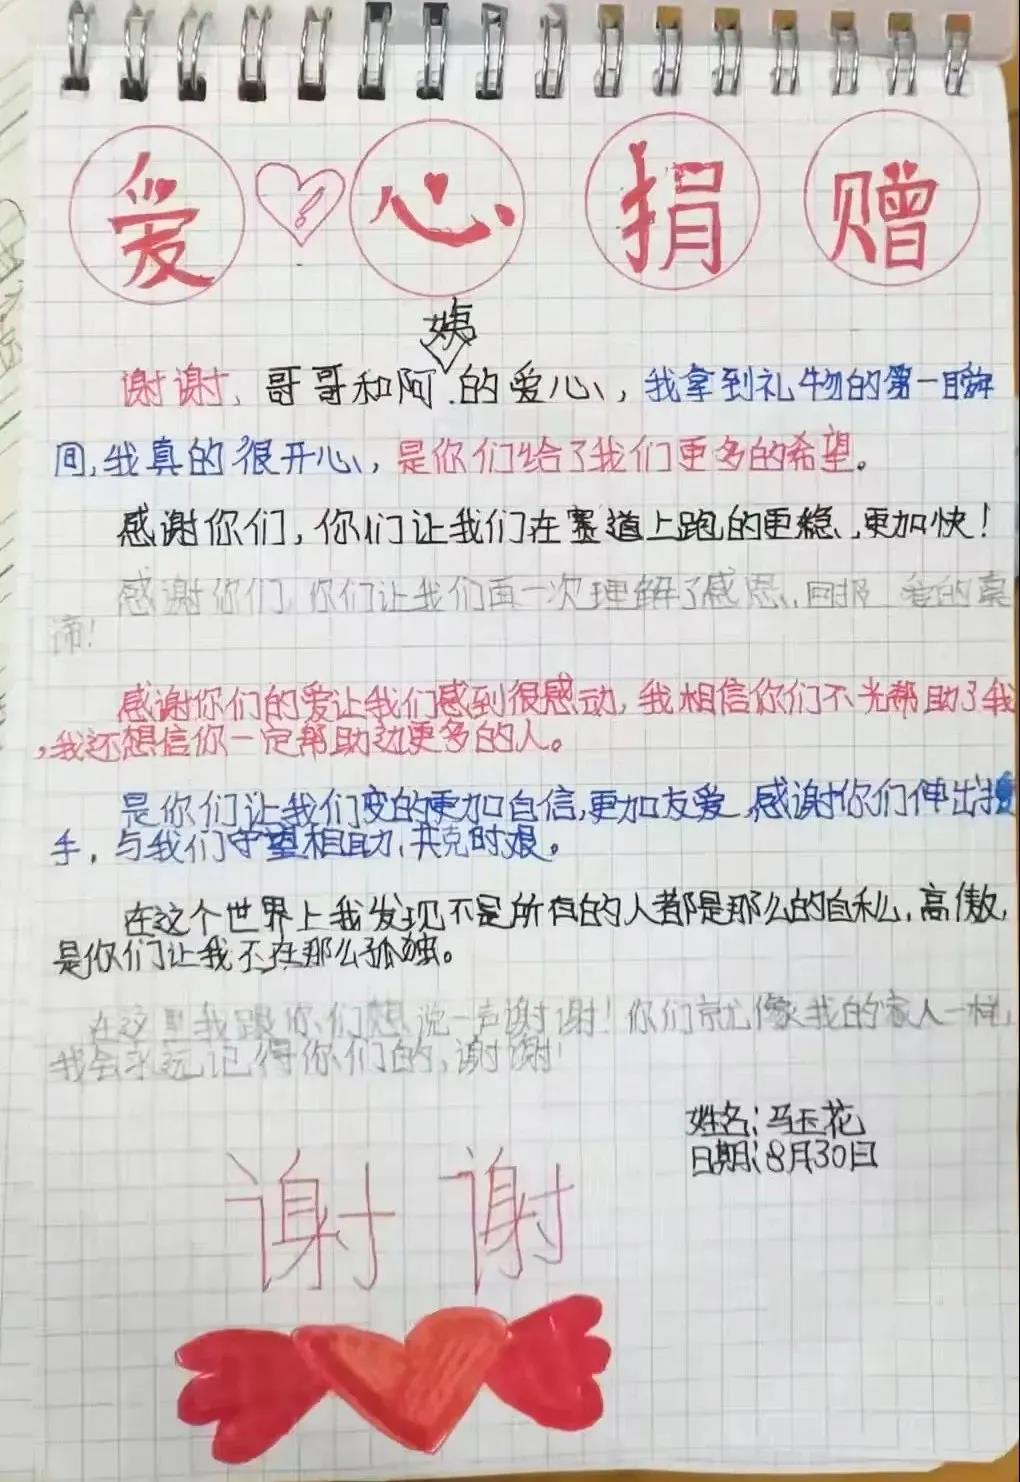 爱心捐赠
谢谢，哥哥和阿姨的爱心，我拿到礼物的第一瞬
间，我真的很开心，是你们给了我们更多的希望。
感谢你们，你们让我们在赛道上跑的更稳，更加快！
感谢你们，你们让我们再一次理解了感恩，回报，爱的真
谛！
感谢你们的爱让我们感到很感动，我相信你们不光帮助了我
，我还想信你一定帮助过更多的人。
是你们让我们变的更加自信，更加友爱，感谢你们伸出援
手，与我们守望相助，共克时艰。
在这个世界上我发现不是所有的人都是那么的自私，高傲，
是你们让我不在那么孤独。
在这里我跟你们想说一声谢谢！你们就像我的家人一样，
我会永远记得你们的，谢谢！
姓名：马玉花
日期：8月30日
谢谢